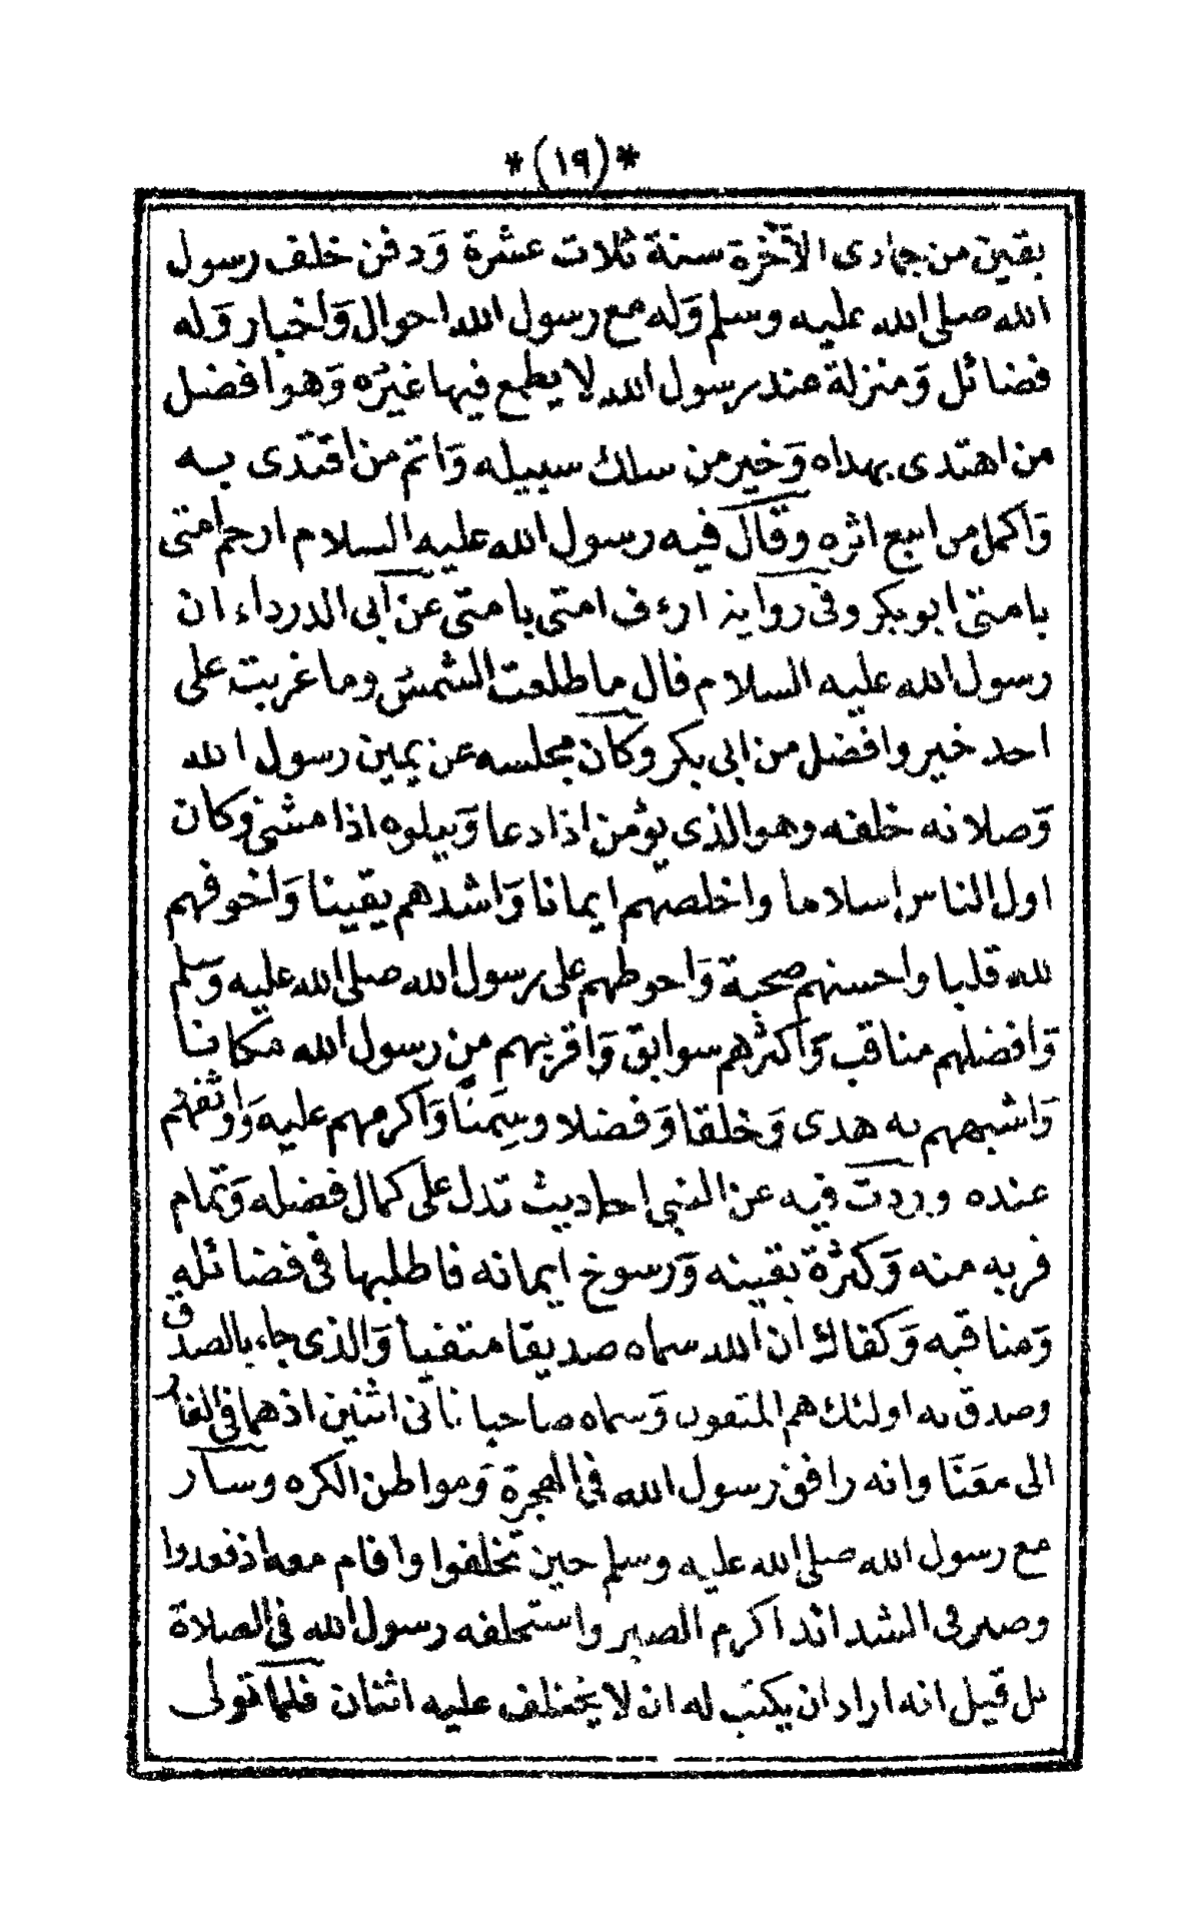 *(١٩)*
بقين من جمادى الآخرة سنة ثلاث عشرة وَدفن خلف رسول
الله صلى الله عليه وسلم وَله مع رسول الله احوال وَاخبار وَله
فضائل وَمنزلة عند رسول الله لا يطمع فيها غيره وَهو افضل
من اهتدى بهداه وَخير من سلك سبيله وَاتم من اقتدى به
وَاكمل من اتبع اثره وقال فيه رسول الله عليه السلام ارحم امتى
بامتى ابو بكر وفى رواية ارءف امتى بامتى عن ابى الدرداء ان
رسول الله عليه السلام قال ما طلعت الشمس وما غربت على
احد خير وافضل من ابى بكر وكان مجلسه عن يمين رسول الله
وَصلاته خلفه وهو الذى يؤمن اذا دعا وَيتلوه اذا مشى وكان
اول الناس إسلاما واخلصهم ايمانا وَاشدهم يقينا وَاخوفهم
لله قلبا واحسنهم صحبة وَاحوطهم على رسول الله صلى الله عليه وَسلم
وَافضلهم مناقب وَاكثرهم سوابق وَاقربهم من رسول الله مكانا
وَاشبههم به هدى وَخلقا وَفضلا وسِمتًا وَاكرمهم عليه وَاوثقهم
عنده وردت فيه عن النبى احاديث تدل على كمال فضله وَتمام
قربه منه وَكثرة يقينه وَرسوخ ايمانه فاطلبها فى فضائله
وَمناقبه وَكفاك ان الله سماه صديقا متقيا وَالذى جاء بالصدق
وصدق به اولئك هم المتقون وَسماه صاحبا ثانى اثنين اذهما فى الغار
الى معَنّا وانه رافق رسول الله فى الهجرة وَمواطن الكره وسار
مع رسول الله صلى الله عليه وسلم حين تخلفوا واقام معه اذ قعدوا
وصبر فى الشدائد اكرم الصبر واستخلفه رسول الله فى الصلاة
بل قيل انه اراد ان يكتب له ان لا يختلف عليه اثنان فلما تولى